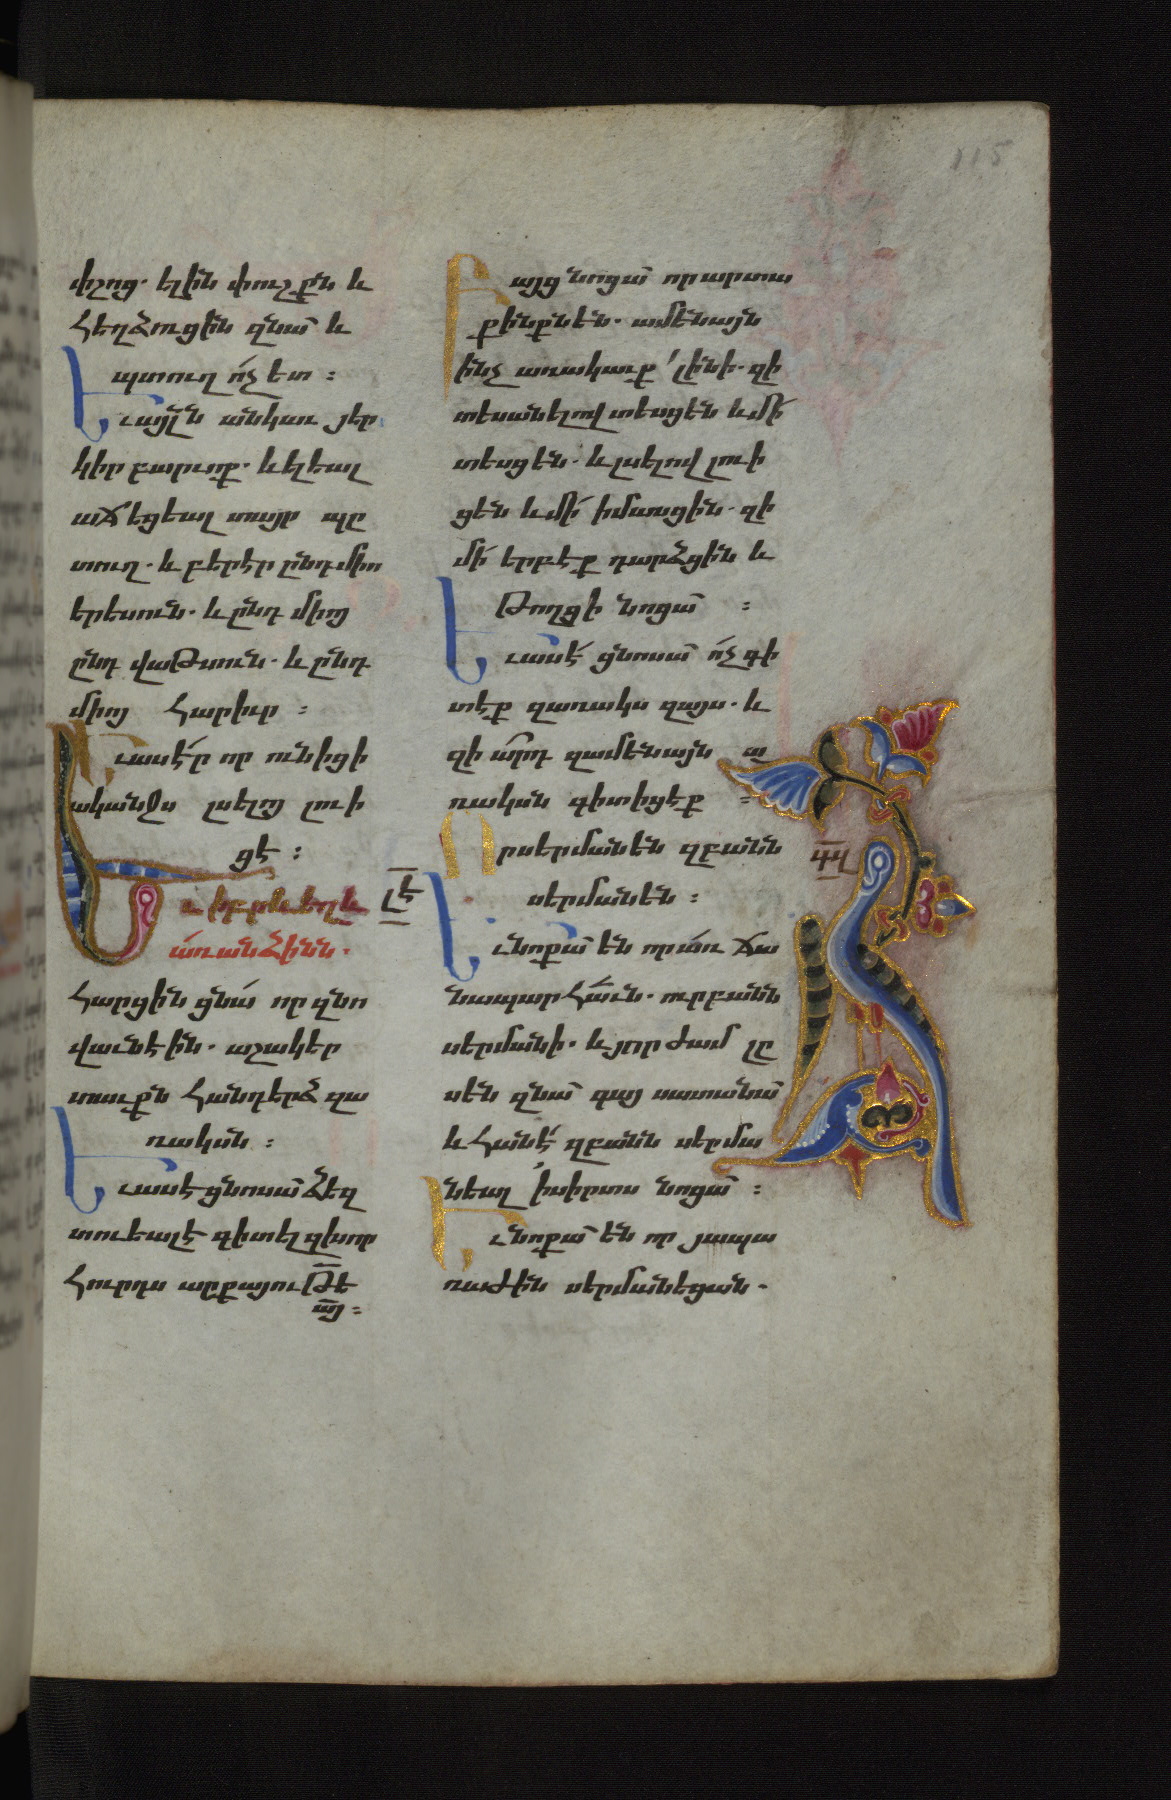 115
փշոց. ելին փուշքն և
հեղձուցին զնա՛ և
պտուղ ո՛չ ետ ։
Եւ այլն անկաւ յեր
կիր բարւոք. և ելեալ
աճեցեալ տայր պը
տուղ. և բերէր ընդ միո
երեսուն. և ընդ միոյ
ընդ վաթսուն. և ընդ
միոյ հարիւր ։
Եւ ասէ՛ր որ ունիցի
ականջս լսելոյ լուի
ցէ ։
Եւ իբրև եղև
առանձինն.
լէ
հարցին ցնա՛ որ զնո
վաւն էին. աշակեր
տաւքն հանդերձ զա
ռակսն ։
Եւ ասէ ցնոսա՛ ձեզ
տուեալ է գիտել զխոր
հուրդս արքայութե
այ ։
Բայց նոցա՛ որ արտա
քինքն են. ամենայն
ինչ առակաւք լինի. զի
տեսանելով տեսցեն և մի՛
տեսցեն. և լսելով լուի
ցեն և մի՛ իմասցին. զի
մի՛ երբեք դարձցին և
թողցի նոցա՛ ։
Եւ ասէ՛ ցնոսա՛ ո՛չ գի
տէք զառակս զայս. և
զի արդ զամենայն ա
ռակսն գիտիցէք ։
Որ սերմանեն զբանն
սերմանեն ։
գկ
Եւ նոքա՛ են որ առ ճա
նապարհաւն. ուր բանն
սերմանի. և յորժամ լը
սեն զնա՛ գայ սատանա՛
և հանէ՛ զբանն սերմա
նեալ ի սիրտս նոցա՛ ։
Եւ նոքա՛ են որ յապա
ռաժին սերմանեցան.